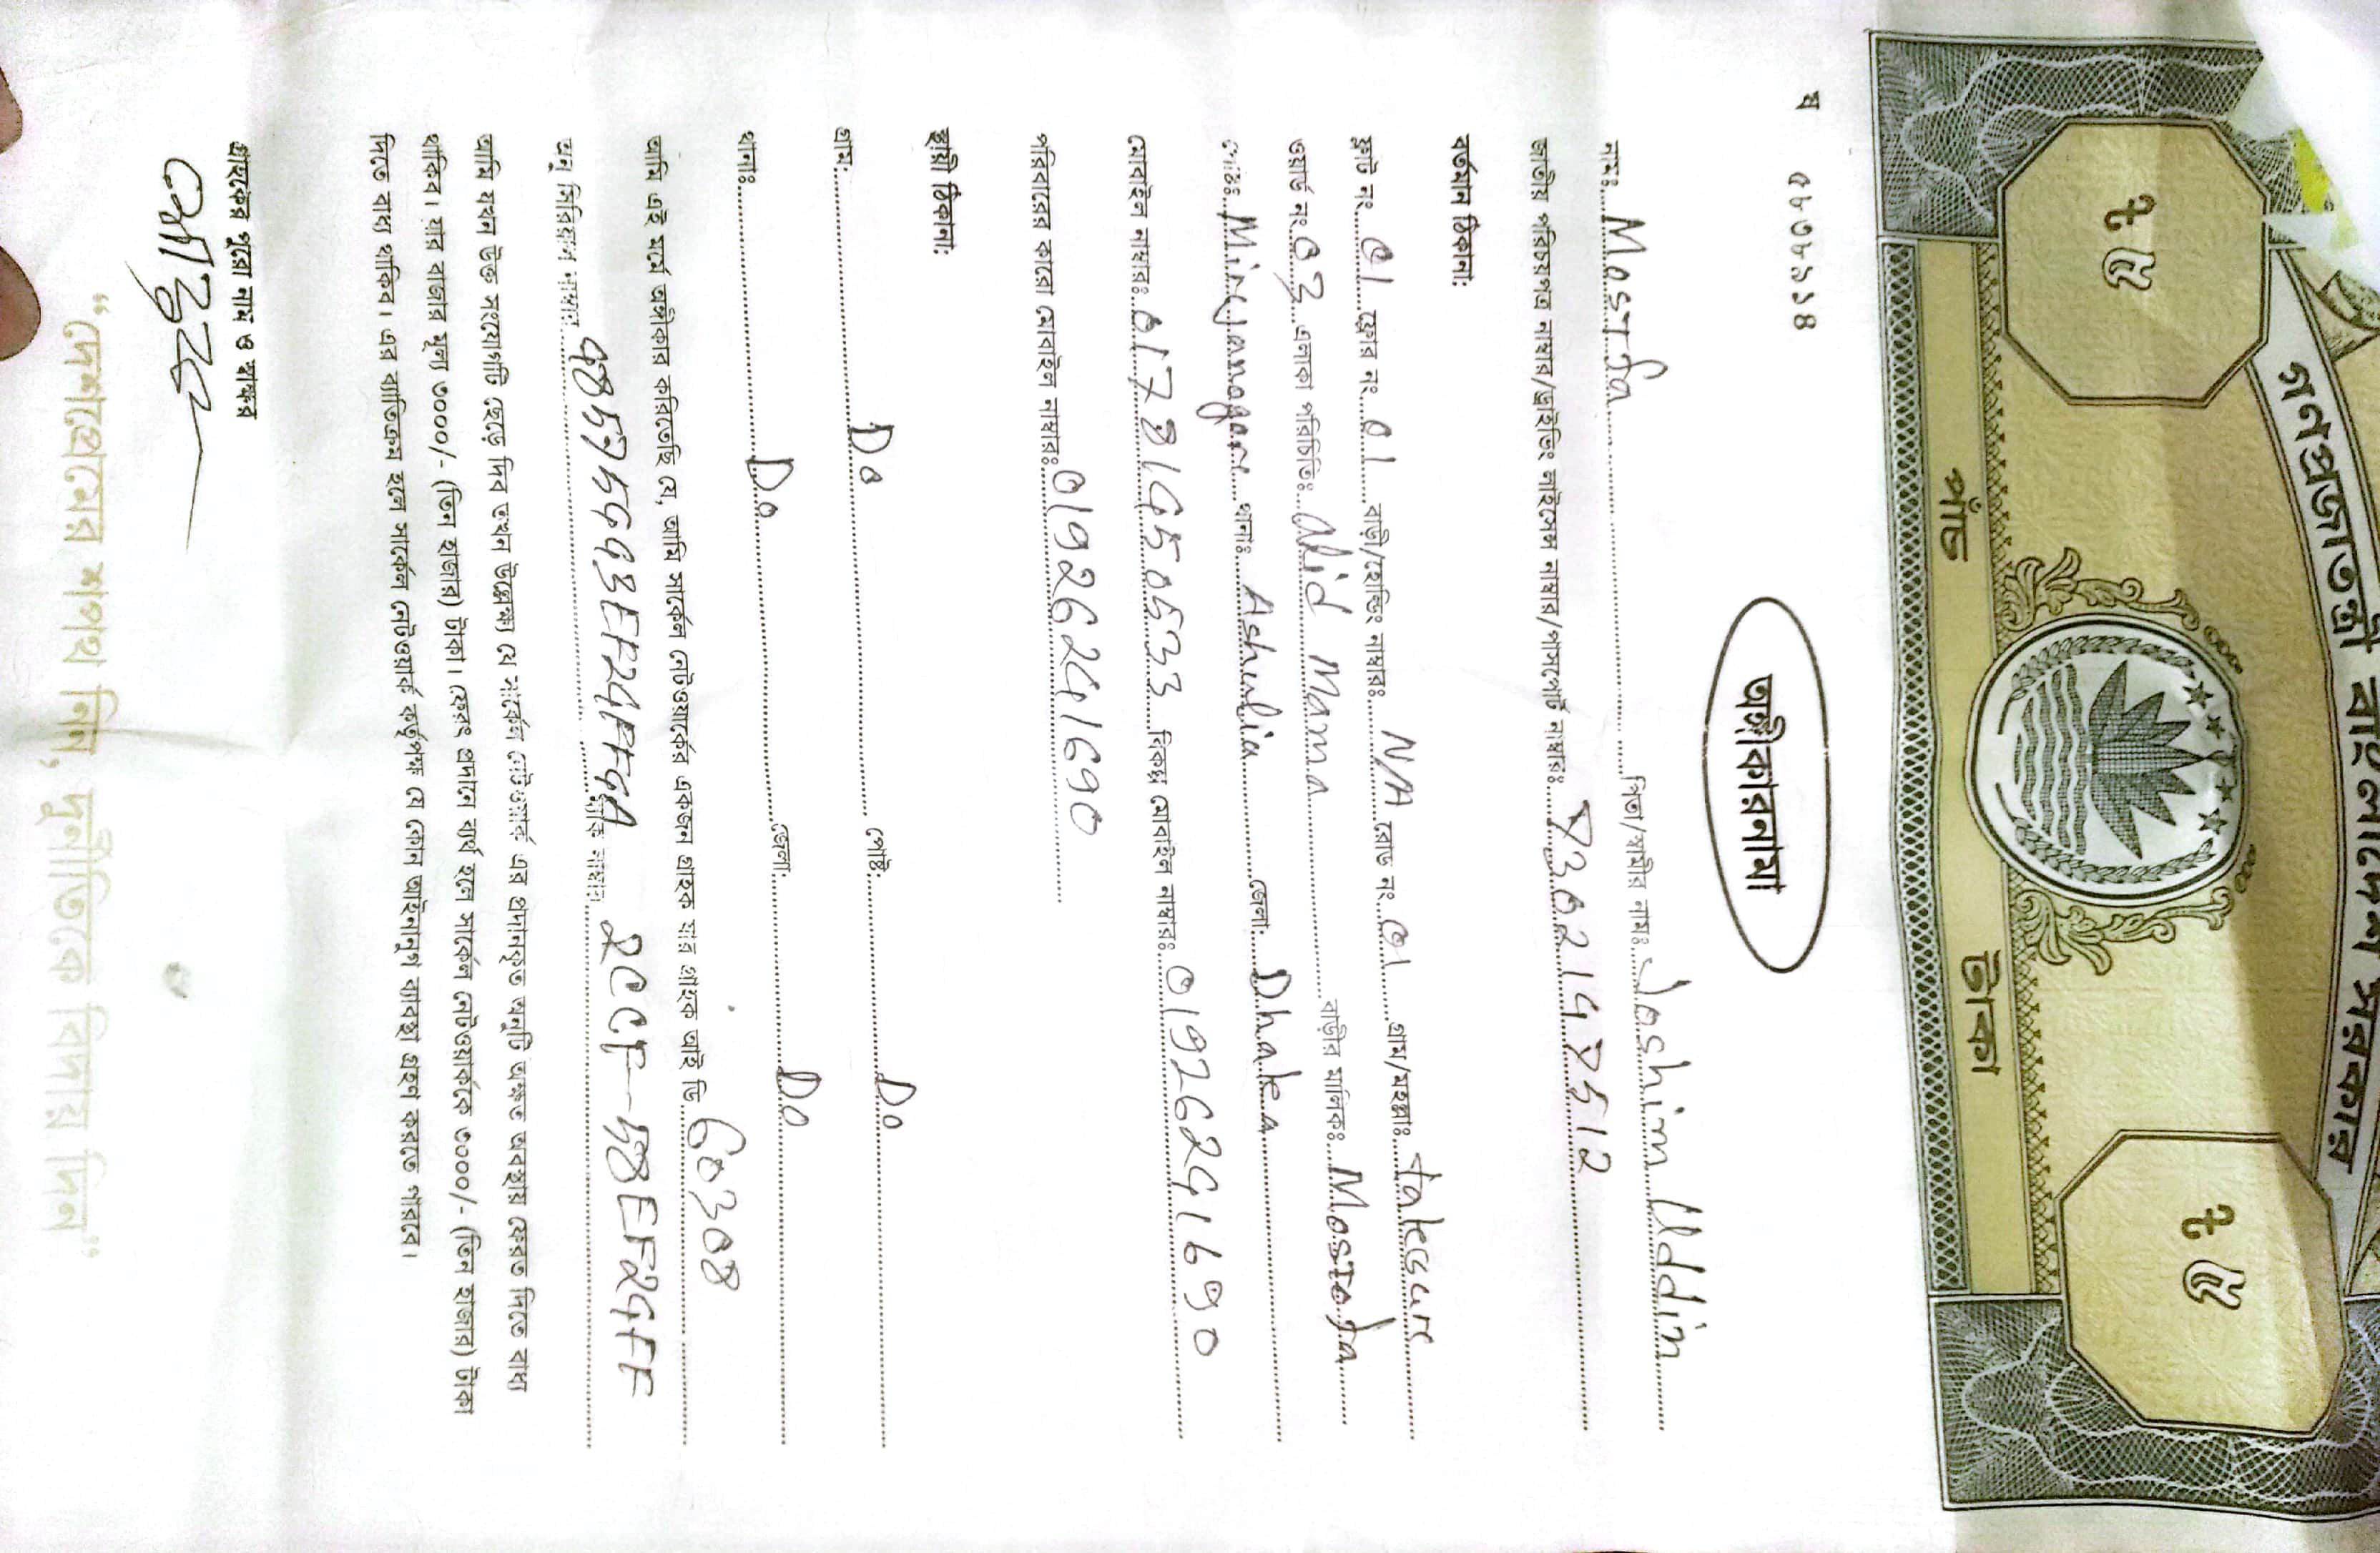 গণপ্রজাতন্ত্রী বাংলাদেশ সরকার
৳ ৫
৳ ৫
পাঁচ টাকা
অঙ্গীকারনামা
নামঃ Mostofa পিতা/স্বামীর নামঃ Joshim Uddin
জাতীয় পরিচয়পত্র নাম্বার/ড্রাইভিং লাইসেন্স নাম্বার/পাসপোর্ট নাম্বারঃ
বর্তমান ঠিকানা:
ফ্লাট নং 01 ফ্লোর নং 01 বাড়ী/হোল্ডিং নাম্বারঃ N/A রোড নং 01 গ্রাম/মহল্লাঃ
ওয়ার্ড নং 03 এলাকা পরিচিতিঃ বাড়ীর মালিকঃ Mostofa
পোষ্টঃ থানাঃ Ashulia জেলা: Dhaka
মোবাইল নাম্বারঃ বিকল্প মোবাইল নাম্বারঃ
পরিবারের কারো মোবাইল নাম্বারঃ
স্থায়ী ঠিকানা:
গ্রাম: Do পোষ্ট: Do
থানাঃ Do জেলা: Do
আমি এই মর্মে অঙ্গীকার করিতেছি যে, আমি সার্কেল নেটওয়ার্কের একজন গ্রাহক যার গ্রাহক আই ডি 60308
অনু সিরিয়াল নাম্বার
আমি যখন উক্ত সংযোগটি ছেড়ে দিব তখন উল্লেখ্য যে সার্কেল নেটওয়ার্ক এর প্রদানকৃত অনুটি অক্ষত অবস্থায় ফেরত দিতে বাধ্য
থাকিব। যার বাজার মূল্য ৩০০০/- (তিন হাজার) টাকা। ফেরৎ প্রদানে ব্যর্থ হলে সার্কেল নেটওয়ার্ককে ৩০০০/- (তিন হাজার) টাকা
দিতে বাধ্য থাকিব। এর ব্যতিক্রম হলে সার্কেল নেটওয়ার্ক কর্তৃপক্ষ যে কোন আইনানুগ ব্যবস্থা গ্রহণ করতে পারবে।
গ্রাহকের পুরো নাম ও স্বাক্ষর
“দেশপ্রেমের শপথ নিন, দুর্নীতিকে বিদায় দিন”